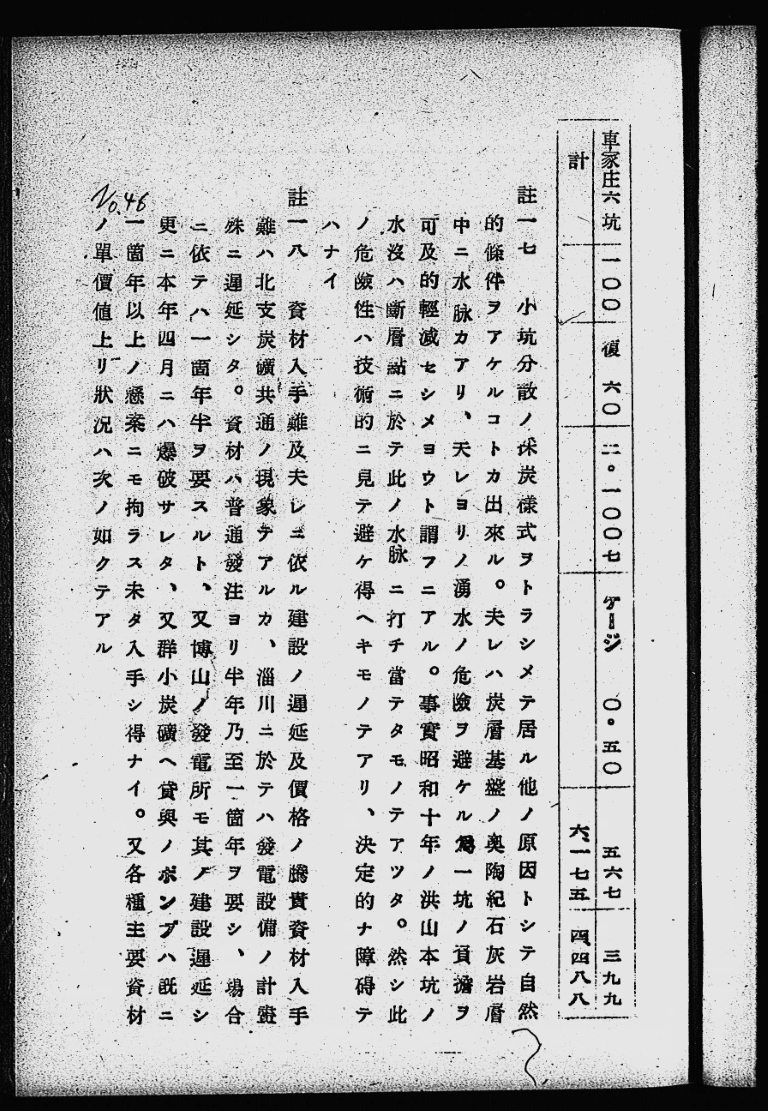 車家庄六坑 一〇〇 復 六〇 二。一〇〇七 ケージ 〇。五〇 五六七 三九九
計 六一七五 四四八八
註一七 小坑分散ノ採炭様式ヲトラシメテ居ル他ノ原因トシテ自然
的條件ヲアケルコトカ出來ル。夫レハ炭層基盤ノ奧陶紀石灰岩層
中ニ水脉カアリ、夫レヨリノ湧水ノ危險ヲ避ケル爲一坑ノ負擔ヲ
可及的輕減セシメヨウト謂フニアル。事實昭和十年ノ洪山本坑ノ
水沒ハ斷層點ニ於テ此ノ水脉ニ打チ當テタモノテアツタ。然シ此
ノ危險性ハ技術的ニ見テ避ケ得ヘキモノテアリ、決定的ナ障碍テ
ハナイ
註一八 資材入手難及夫レニ依ル建設ノ遲延及價格ノ騰貴資材入手
難ハ北支炭礦共通ノ現象テアルカ、淄川ニ於テハ發電設備ノ計畫
殊ニ遲延シタ。資材ハ普通發注ヨリ半年乃至一箇年ヲ要シ、場合
ニ依テハ一箇年半ヲ要スルト、又博山ノ發電所モ其ノ建設遲延シ
更ニ本年四月ニハ爆破サレタ、又群小炭礦ヘ貸與ノポンプハ既ニ
一箇年以上ノ懸案ニモ拘ラス未タ入手シ得ナイ。又各種主要資材
ノ單價値上リ狀況ハ次ノ如クテアル
No.46